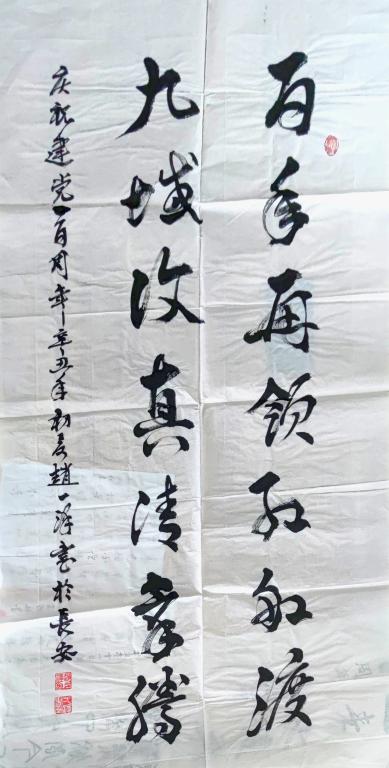 百年再领红船渡
九域真清腾
庆祝建党一百周年辛丑年初夏趙一书於長安